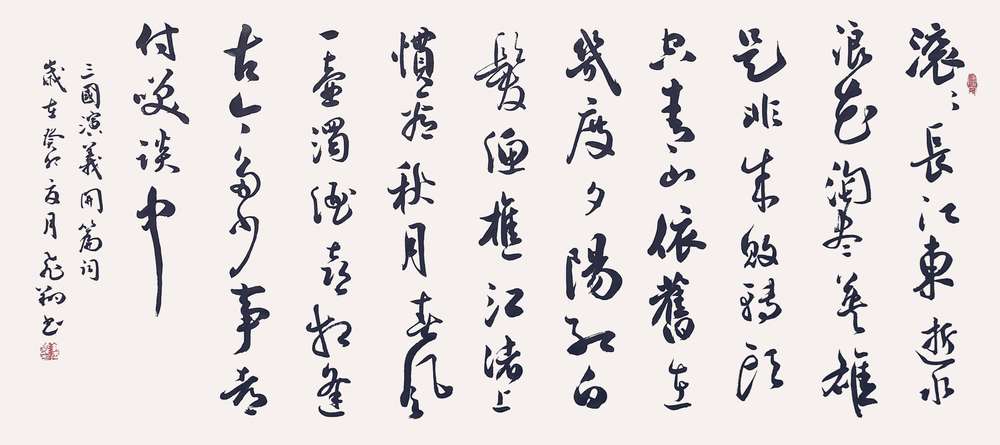 滾〻長江東逝水
浪花淘盡英雄
是非成敗轉頭
空青山依舊在
幾度夕陽紅白
髮漁樵江渚上
慣看秋月春風
一壺濁酒喜相逢
古今多少事都
付咲談中
三國演義開篇詞
歲在癸卯夏月飛翔書